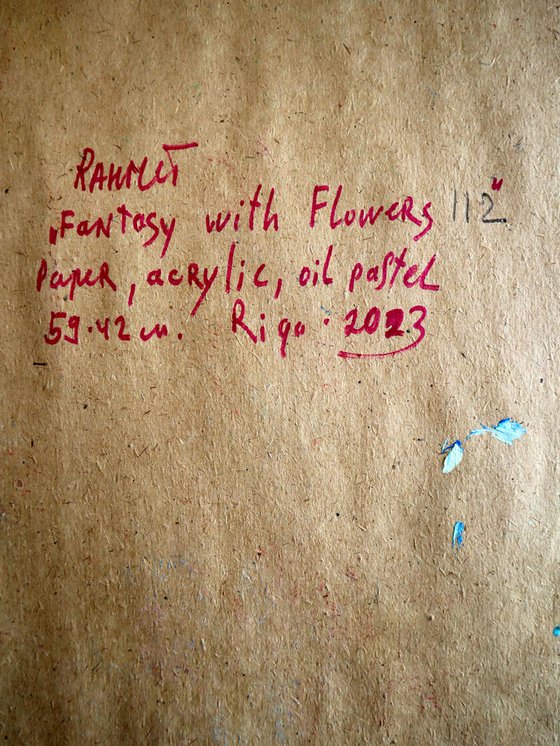 RAHMET
„Fantasy with Flowers 112"
Paper, acrylic, oil pastel
59·42 см. Riga · 2023